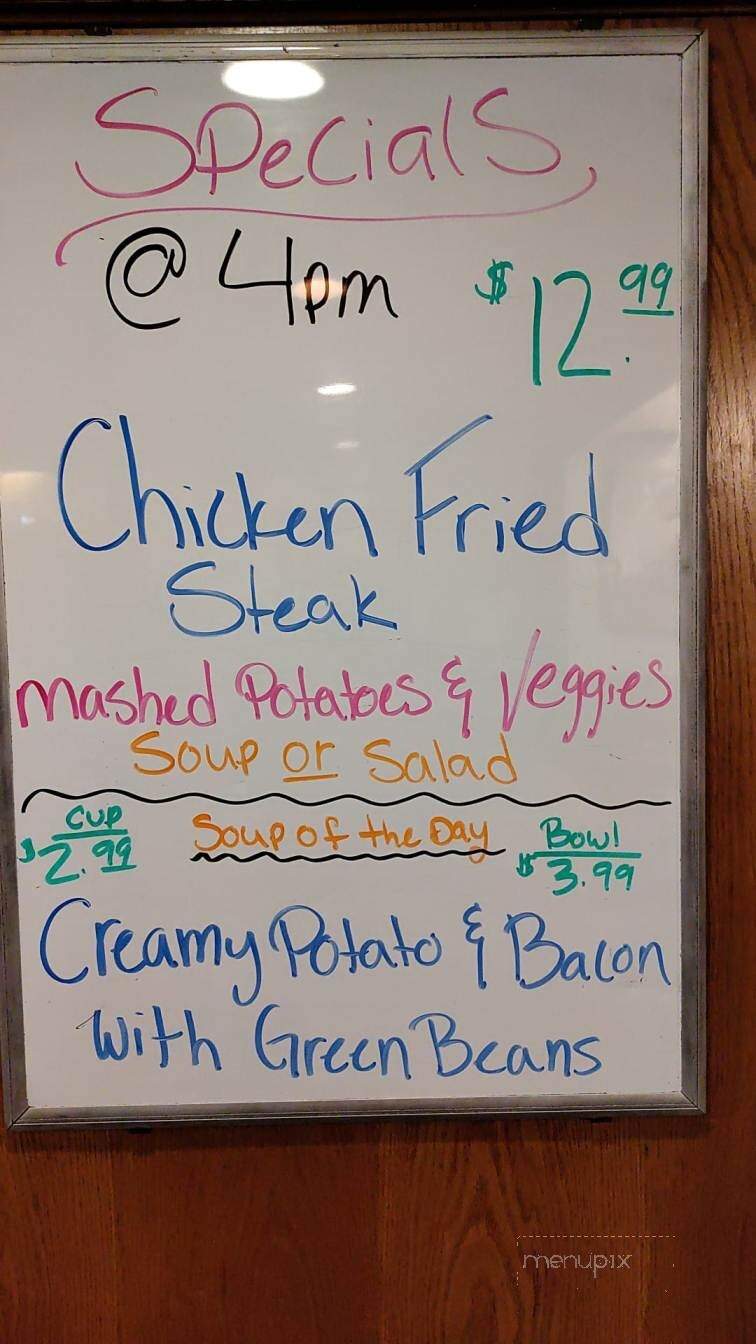 Specials
@ 4pm $12.99
Chicken Fried
Steak
Mashed Potatoes & Veggies
Soup or Salad
Cup Soup of the Day Bowl
$2.99 $3.99
Creamy Potato & Bacon
with Green Beans
menupix